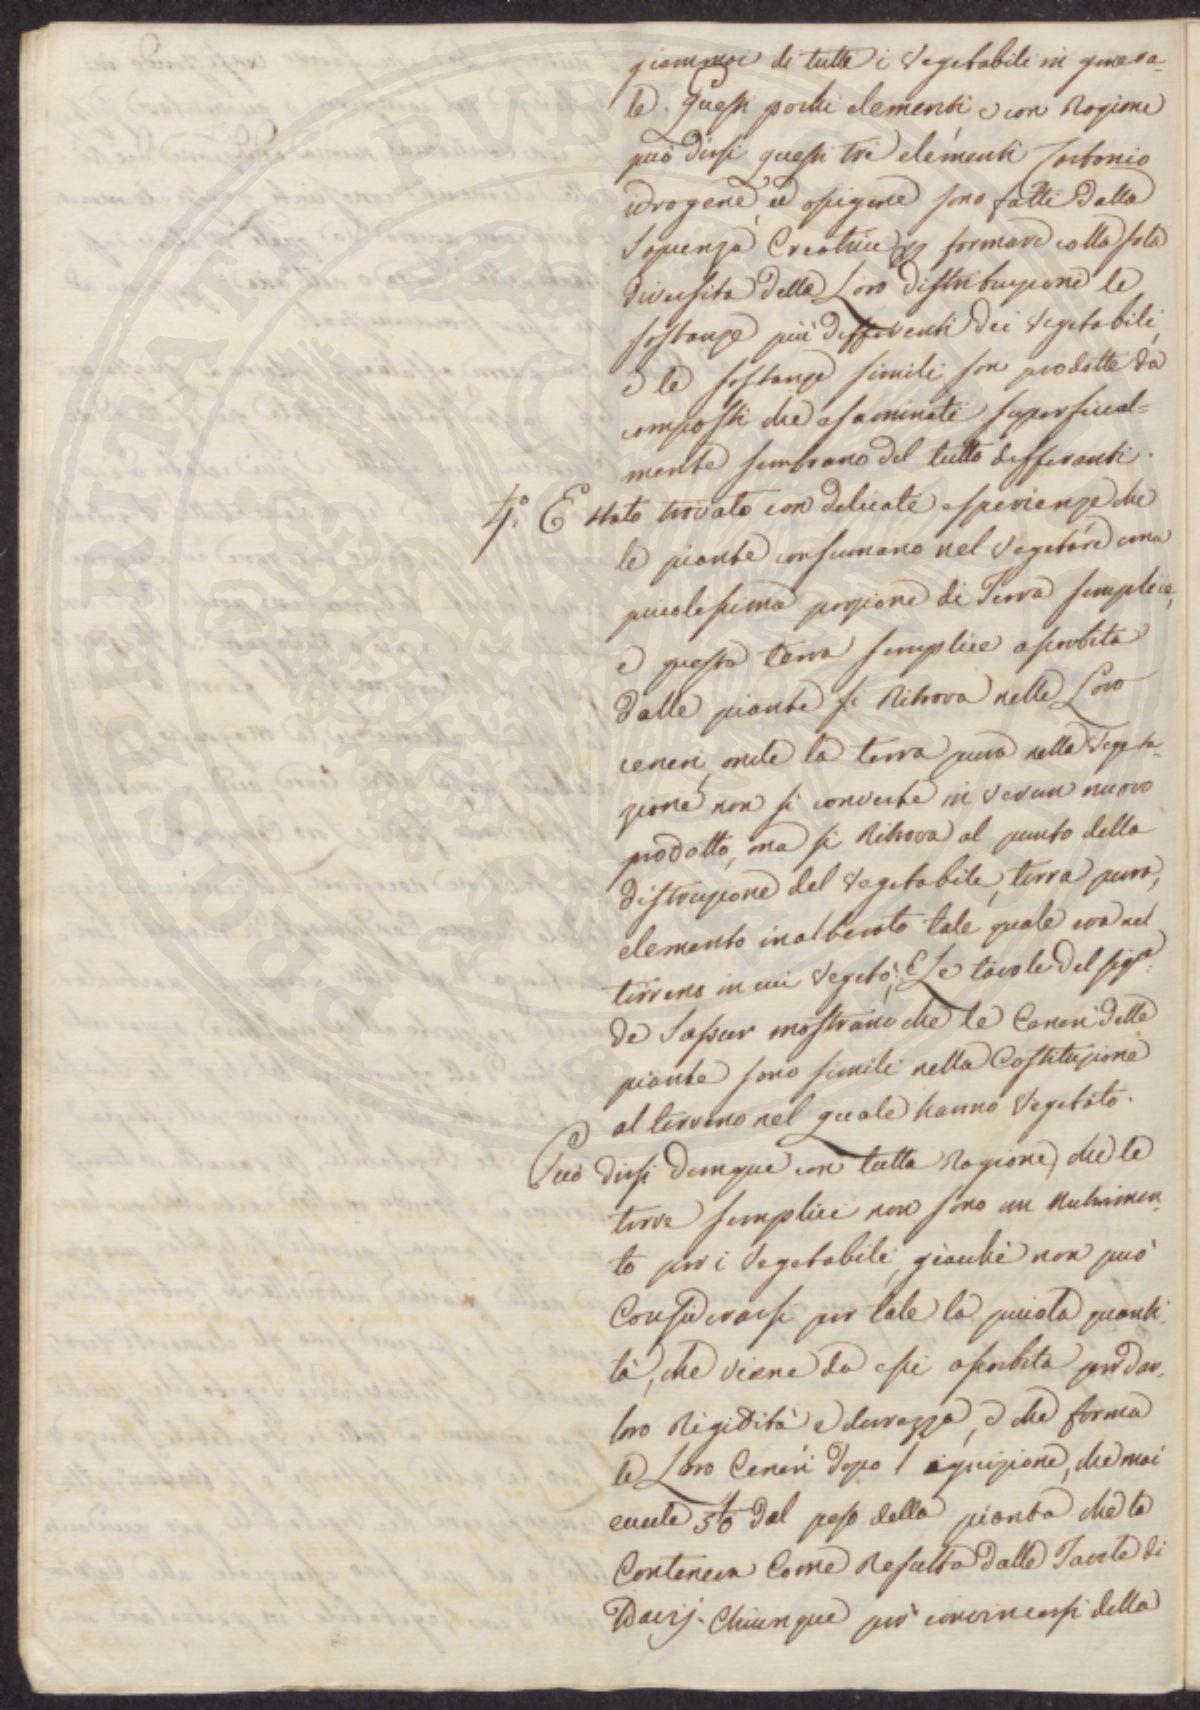 giammai di tutti i Vegetabili in genera-
le. Questi pochi elementi e con Ragione
può dirsi questi tre elementi Carbonio
idrogene, ed ossigene sono fatti dalla
Sapienza Creatrice per formare colla sola
diversita della Loro distribuzione le
sostanze più differenti dei Vegetabili,
e le sostanze simili son prodotte da
composti che esaminati superficial=
mente sembrano del tutto differenti.
4.º È stato trovato con delicate esperienze che
le piante consumano nel Vegetare una
piccolissima porzione di Terra semplice,
e questa terra semplice assorbita
dalle piante si Ritrova nelle Loro
ceneri, onde la terra pura nella Vegeta-
zione non si converte in verun nuovo
prodotto, ma si Ritrova al punto della
distruzione del Vegetabile, terra pura,
elemento inalterato tale quale era nel
terreno in cui Vegetò. Le tavole del sigre.
de Sassur mostrano che le Ceneri delle
piante sono simili nella Costituzione
al terreno nel quale hanno Vegetato.
Può dirsi dunque con tutta Ragione, che le
terre semplici non sono un Nutrimen-
to per i Vegetabili, giacchè non può
Considerarsi per tale la piccola quanti-
tà, che viene da essi assorbita per dar
loro Rigidità e durezza, e che forma
le Loro Ceneri dopo l'ignizione, che mai
eccede 1/50 dal peso della pianta che la
Conteneva Come Resulta dalle Tavole di
Davij. Chiunque può convincersi della